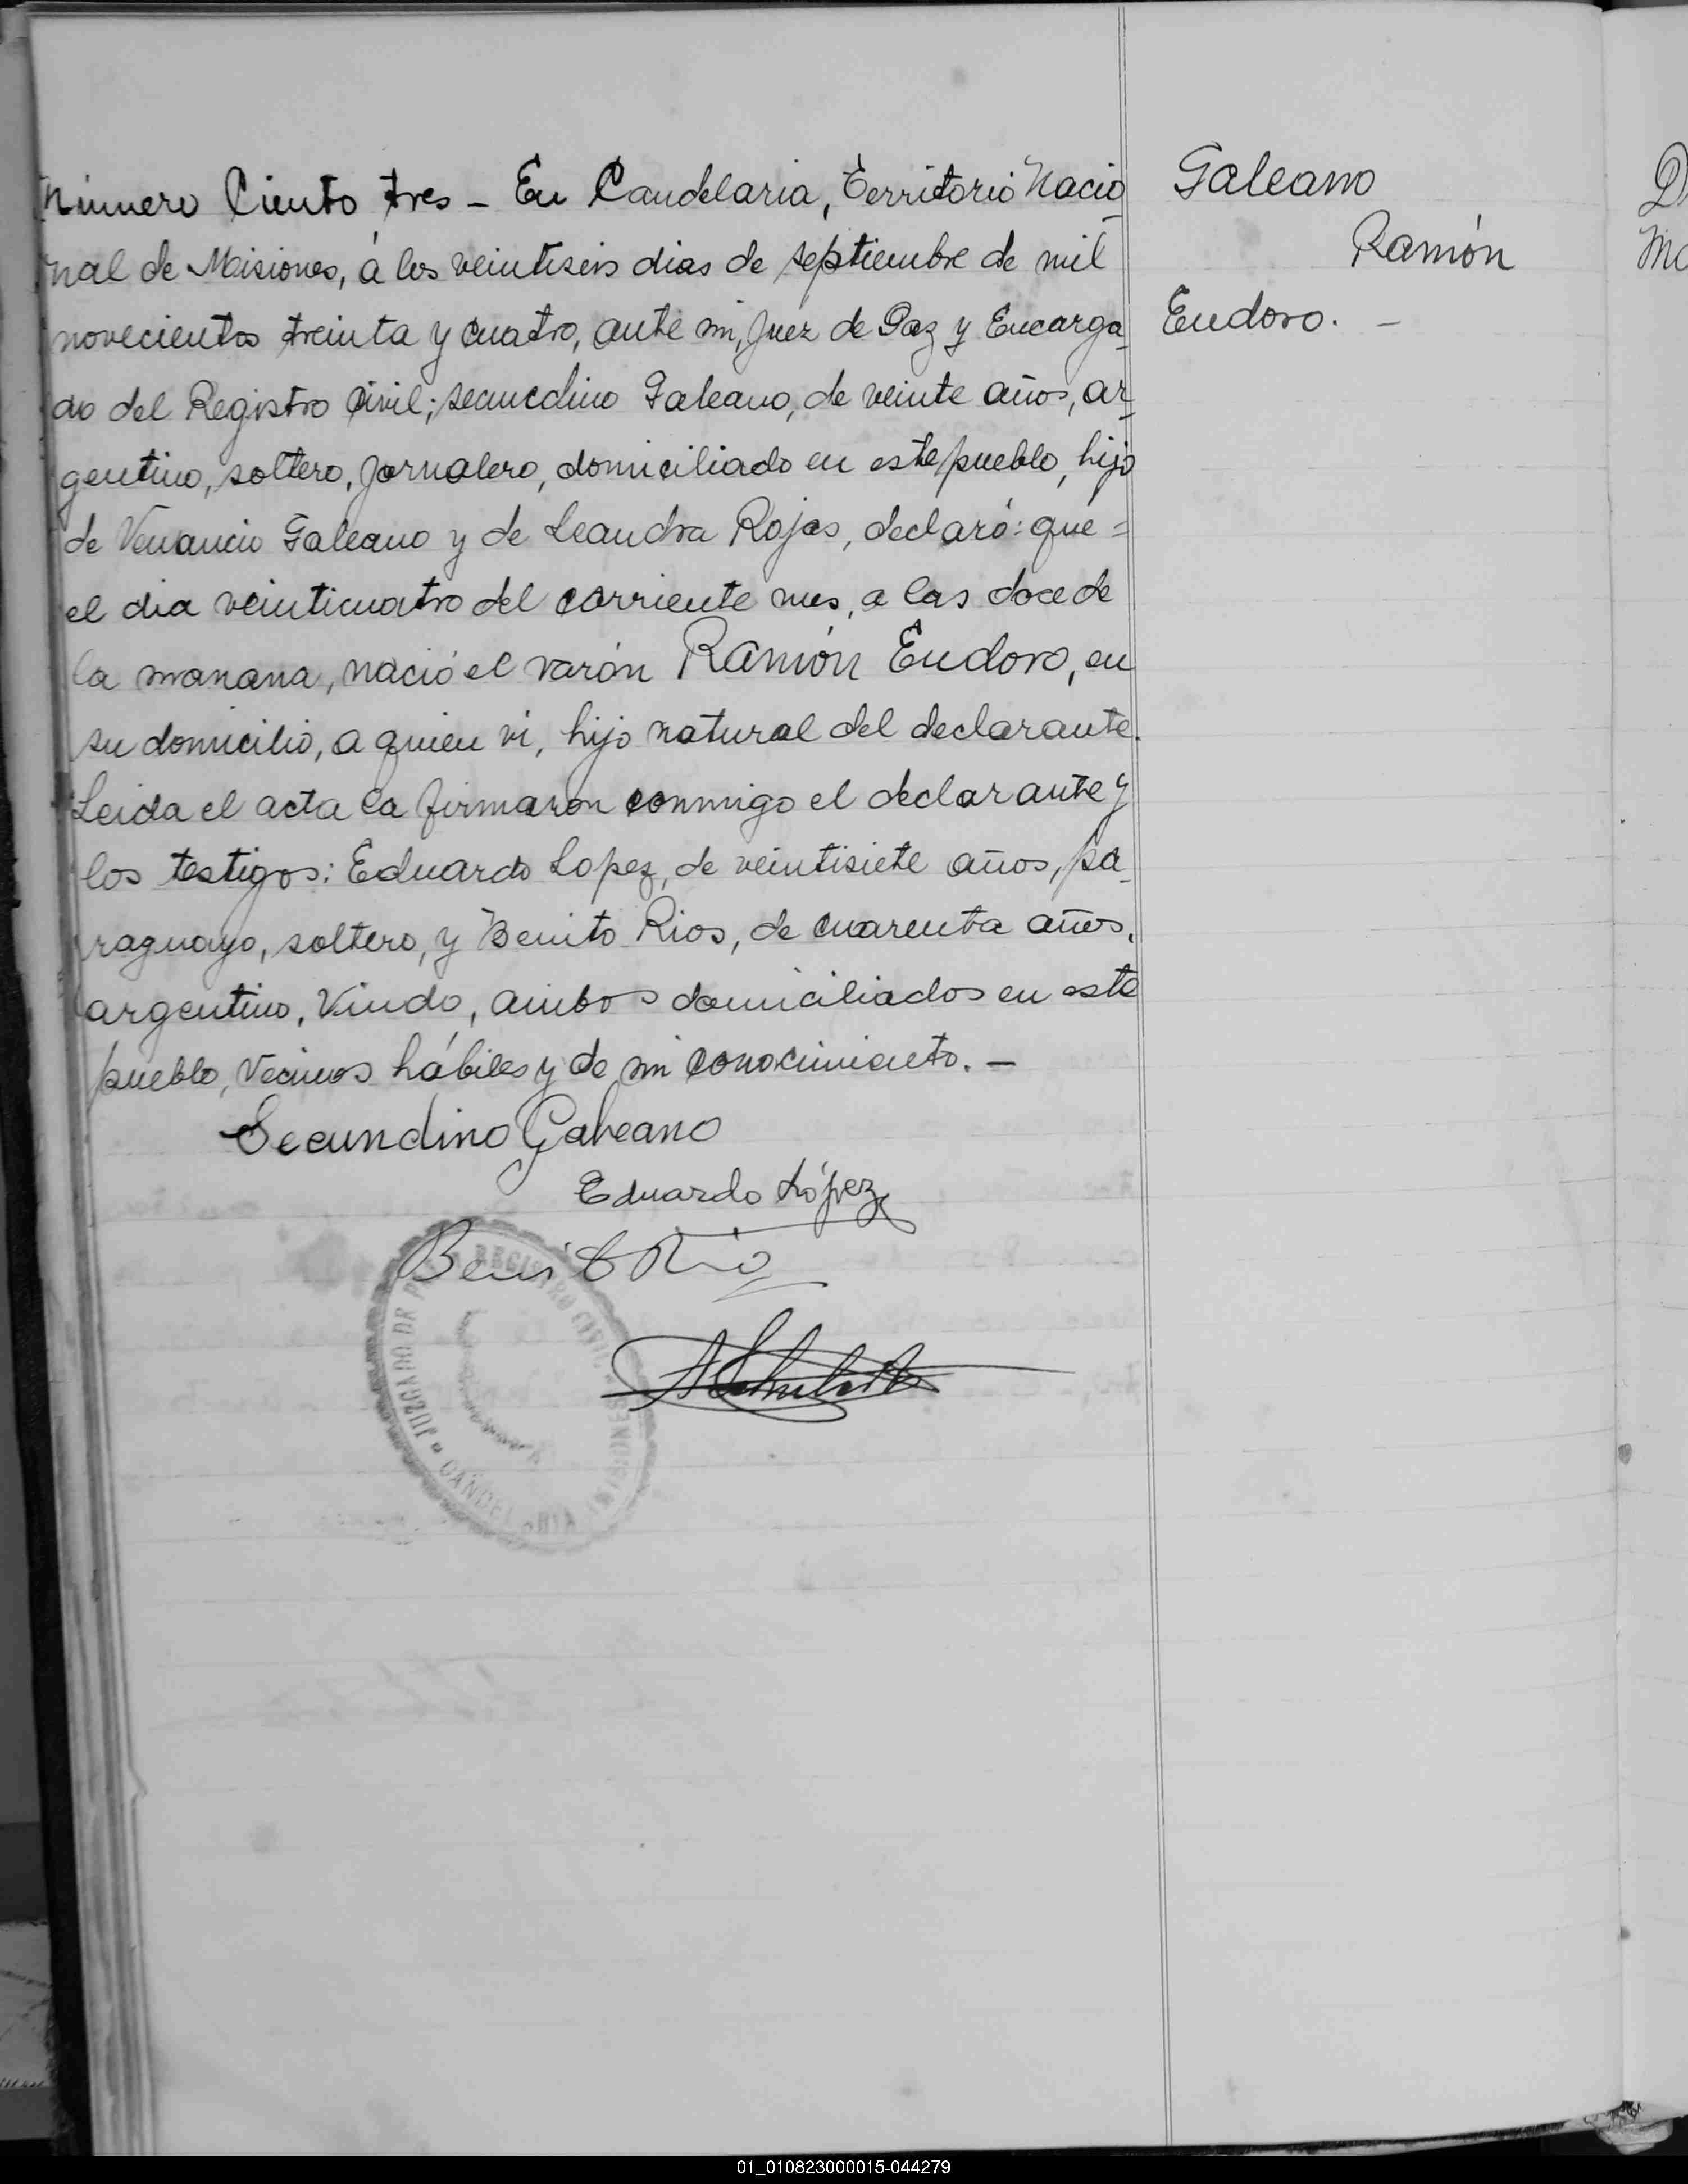 Número Ciento tres - En Candelaria, Territorio Nacio
nal de Misiones, á los veintiseis dias de septiembre de mil
novecientos treinta y cuatro, ante mi, Juez de Paz y Encarga
do del Registro Civil; secundino Galeano, de veinte años, ar
gentino, soltero, jornalero, domiciliado en este pueblo, hijo
de Venancio Galeano y de Leandra Rojas, declaró: que =
el dia veinticuatro del corriente mes, a las doce de
la manana, nació el varón Ramón Eudoro, en
su domicilio, a quien vi, hijo natural del declarante.
Leida el acta la firmaron conmigo el declarante y
los testigos: Eduardo Lopez, de veintisiete años, pa
raguayo, soltero, y Benito Rios, de cuarenta años,
argentino, Viudo, ambos domiciliados en este
pueblo, Vecinos hábiles y de mi conocimiento. -
Secundino Galeano
Eduardo López
Benito Rio
JUZGADO DE P REGISTRO CIVIL
CANDELARIA
Galeano
Ramón
Eudoro. -
01_010823000015-044279